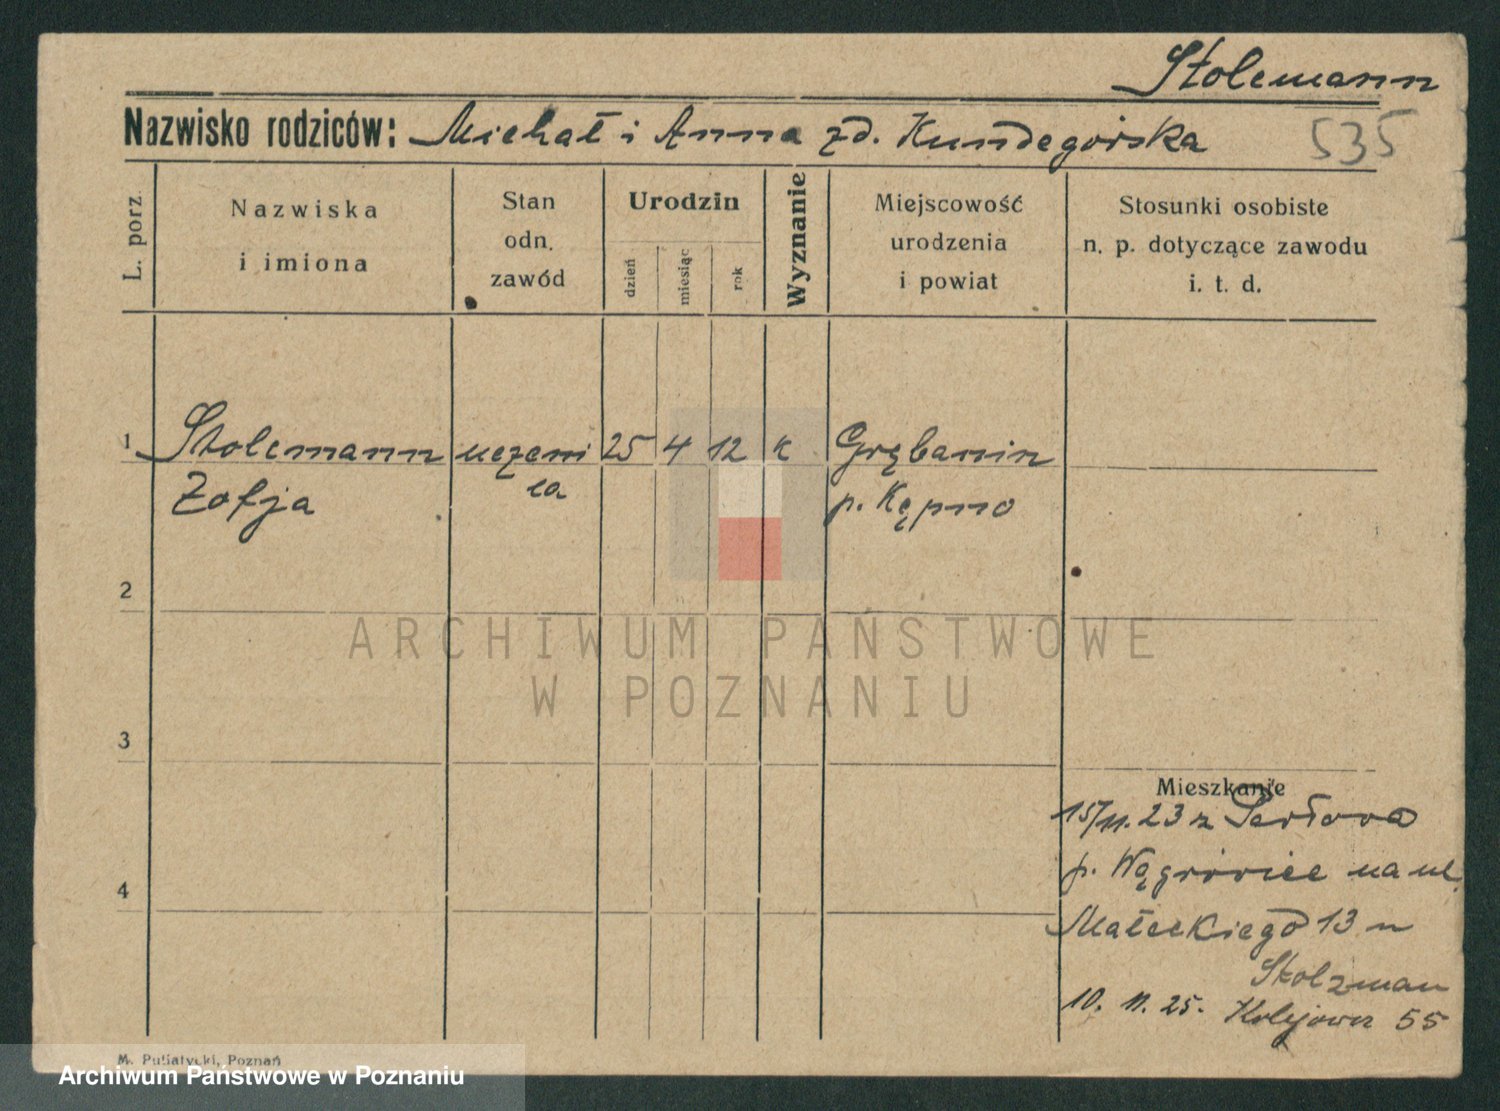 Stolcmann
Nazwisko rodziców: Michał i Anna zd. Kundegórska
535
L. porz
Nazwiska
i imiona
Stan
odn.
zawód
Urodzin
dzień
miesiąc
rok
Wyznanie
Miejscowość
urodzenia
i powiat
Stosunki osobiste
n. p. dotyczące zawodu
i. t. d.
1 Stolcmann uczeni 25 4 12 k Grębanin
Zofja ca p. Kępno
2
ARCHIWUM PAŃSTWOWE
W POZNANIU
3
Mieszkanie
15/11.23 z
p. Wągrówiec na ul.
Małeckiego 13 u
Stolzman
10. 11. 25. Kolejowa 55
4
M. Putiatycki, Poznań
Archiwum Państwowe w Poznaniu